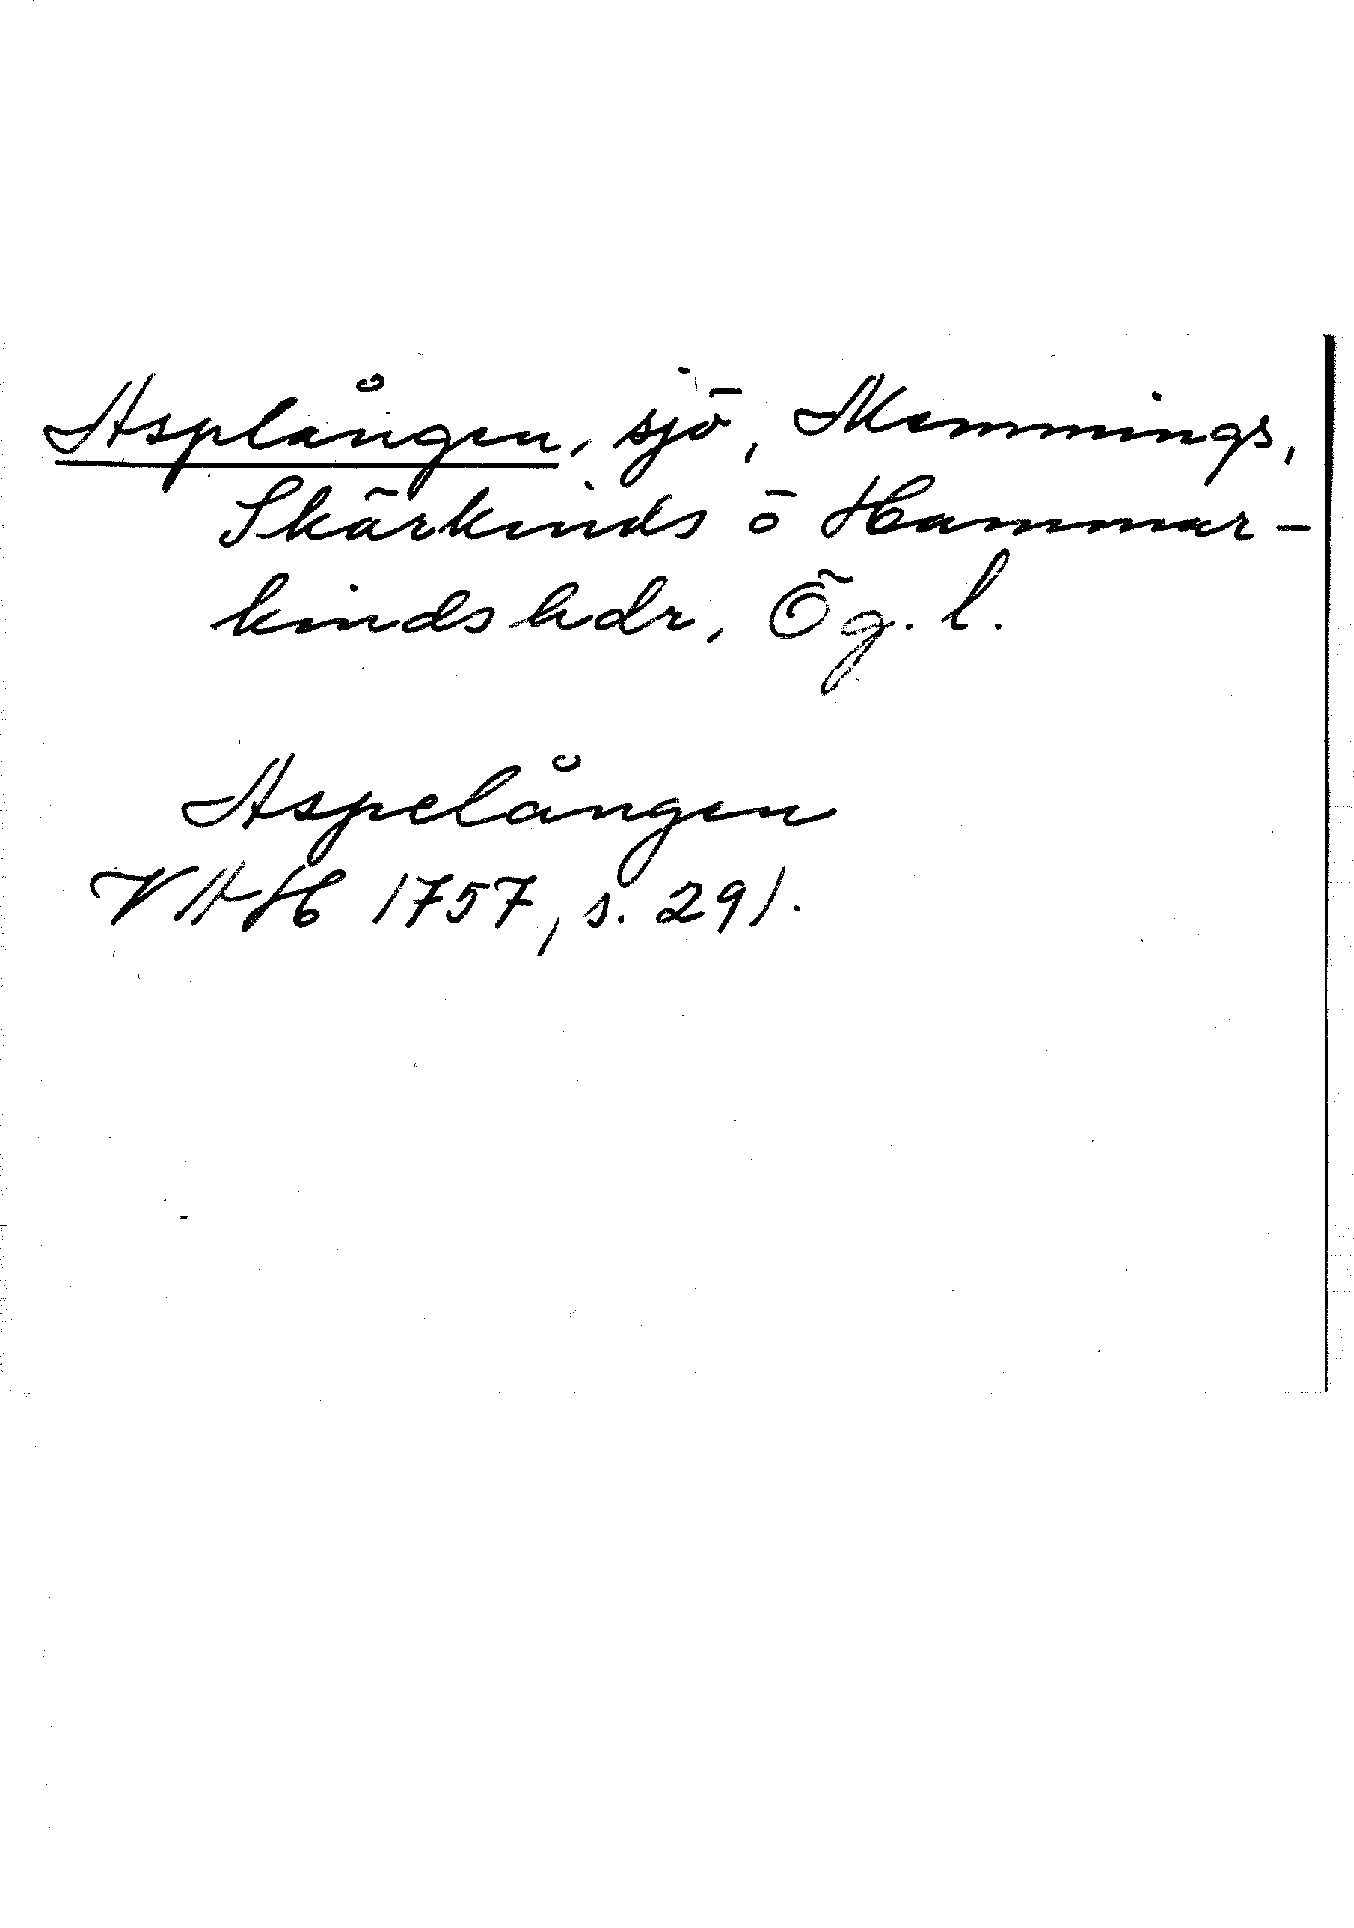 Asplången, sjö, Memmings,
Skärkinds o Hammar-
kinds hdr, Ög. l.
Aspelången
VAH 1757, s. 291.